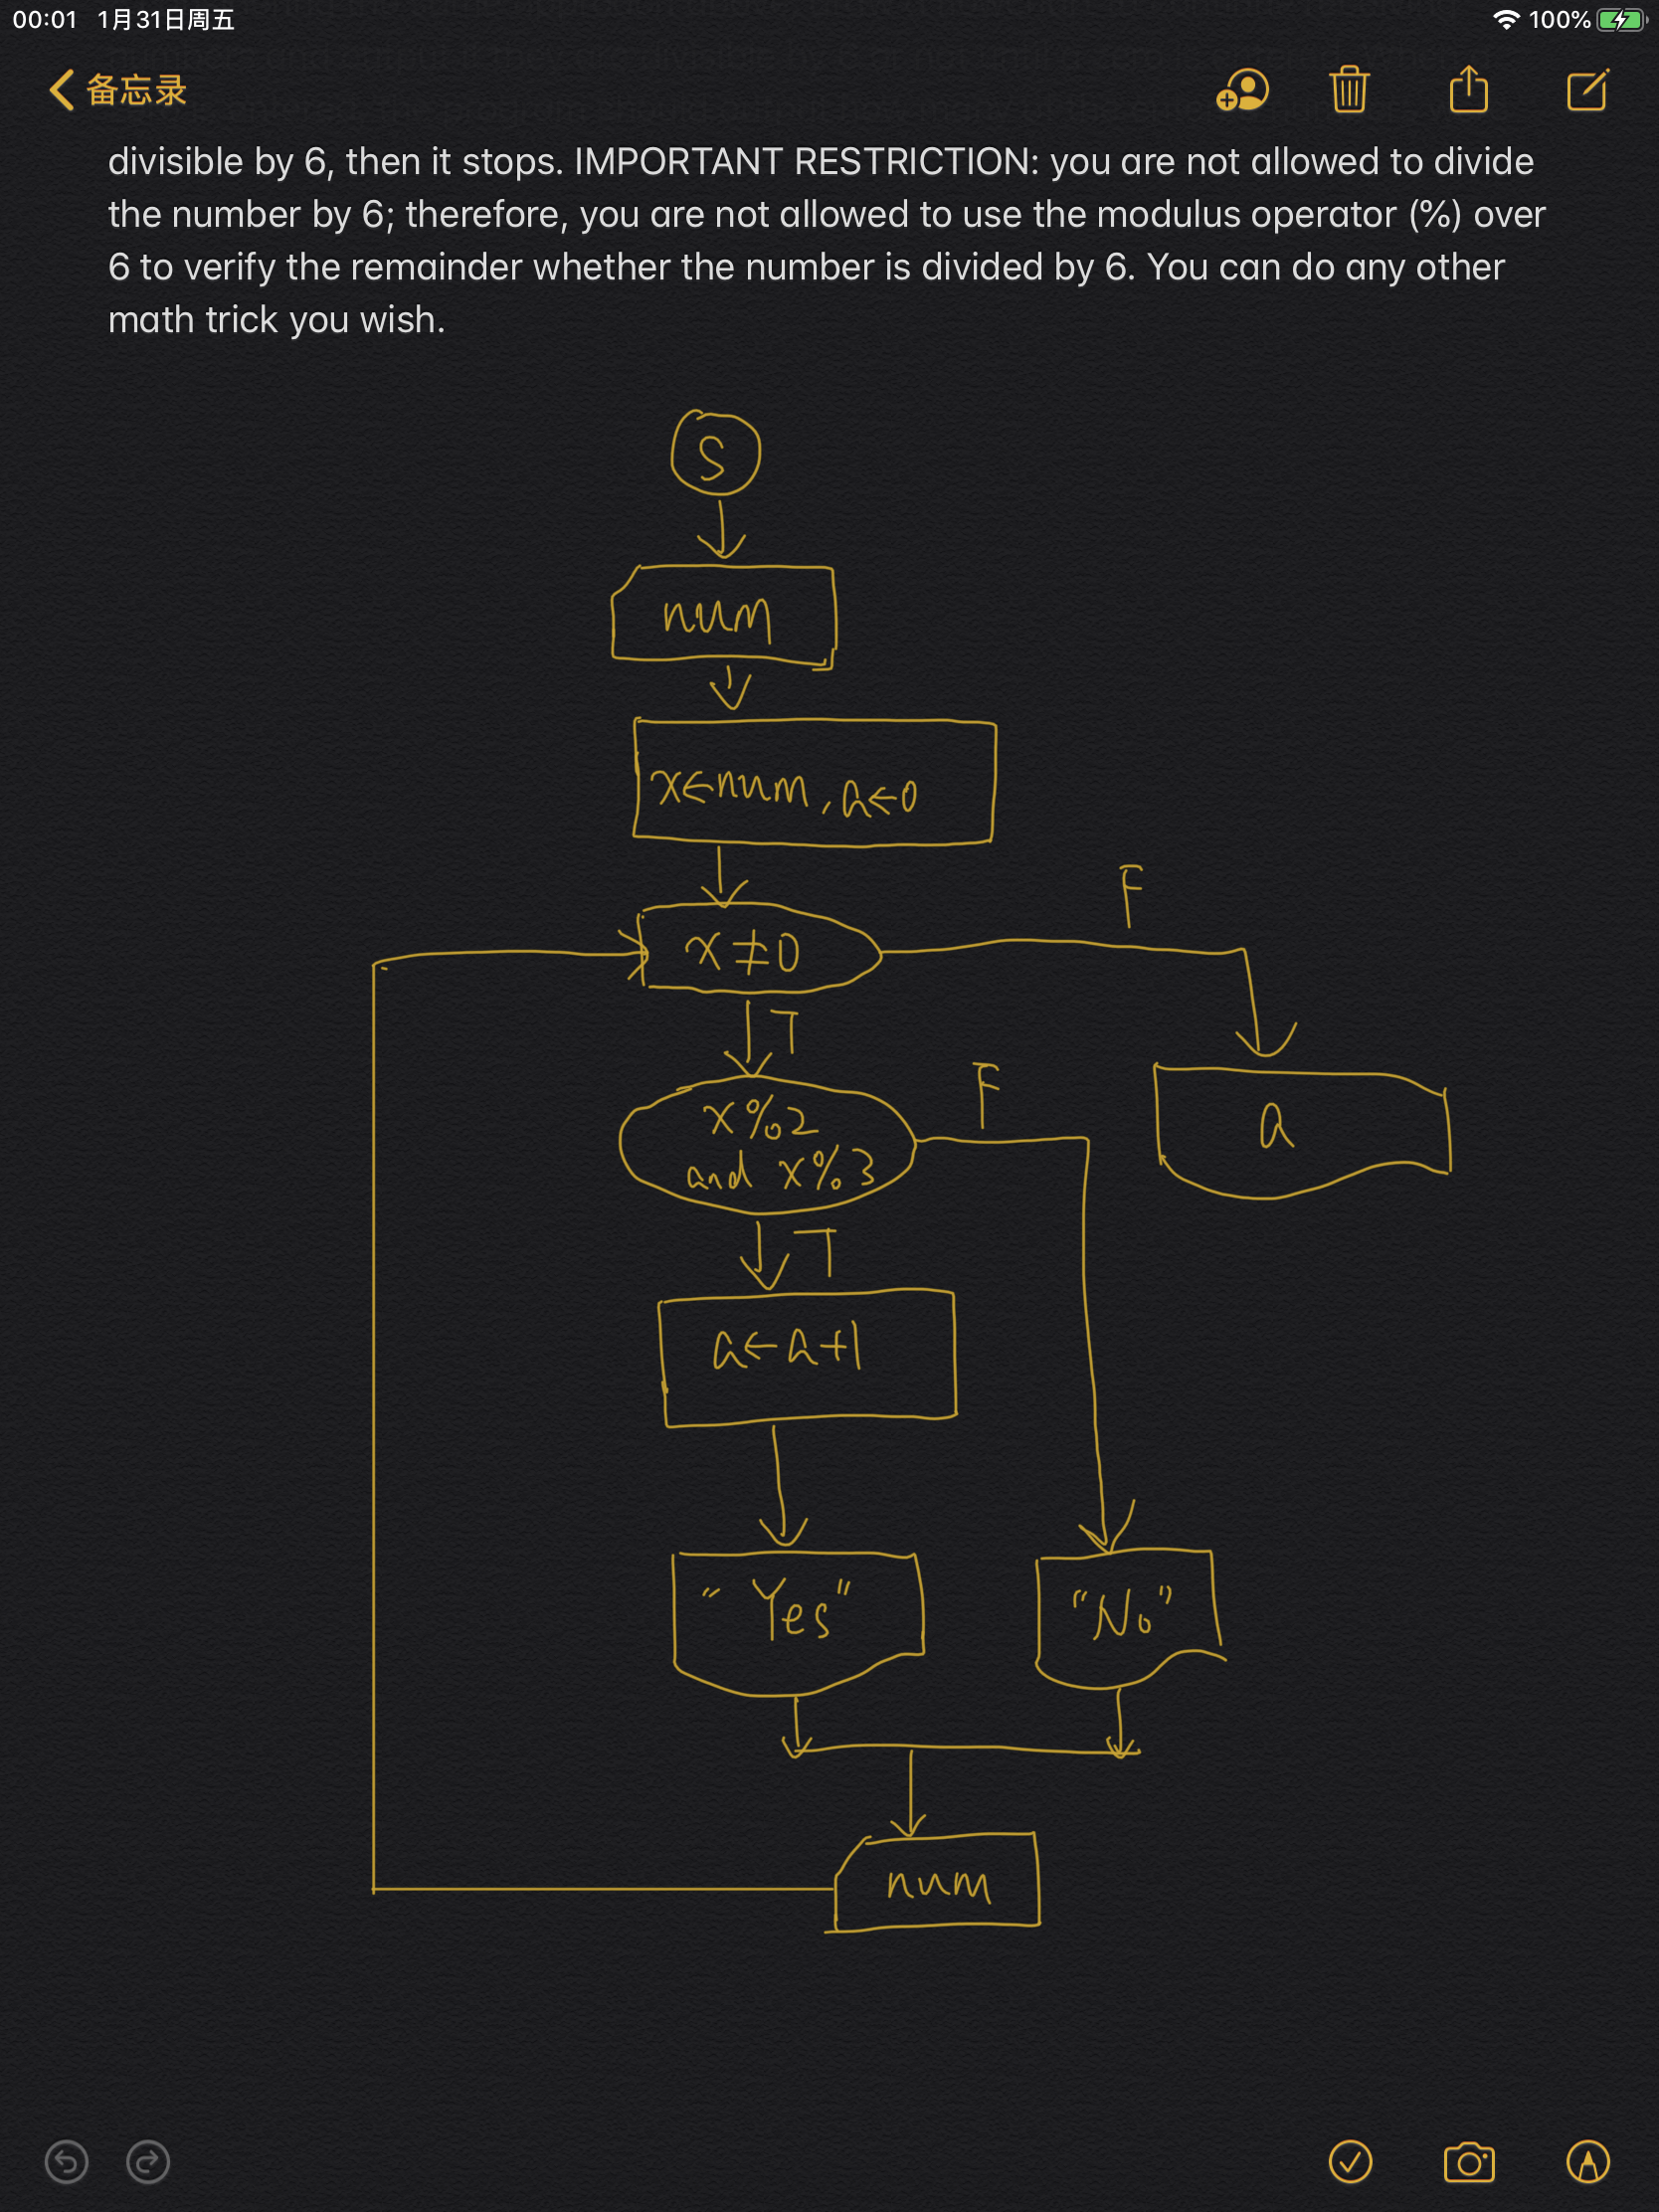 00:01 1月31日周五
100%
备忘录
divisible by 6, then it stops. IMPORTANT RESTRICTION: you are not allowed to divide
the number by 6; therefore, you are not allowed to use the modulus operator (%) over
6 to verify the remainder whether the number is divided by 6. You can do any other
math trick you wish.
S
num
x←num, a←0
F
x≠0
T
F
x%2
and x%3
a
T
a←a+1
"Yes"
"No"
num